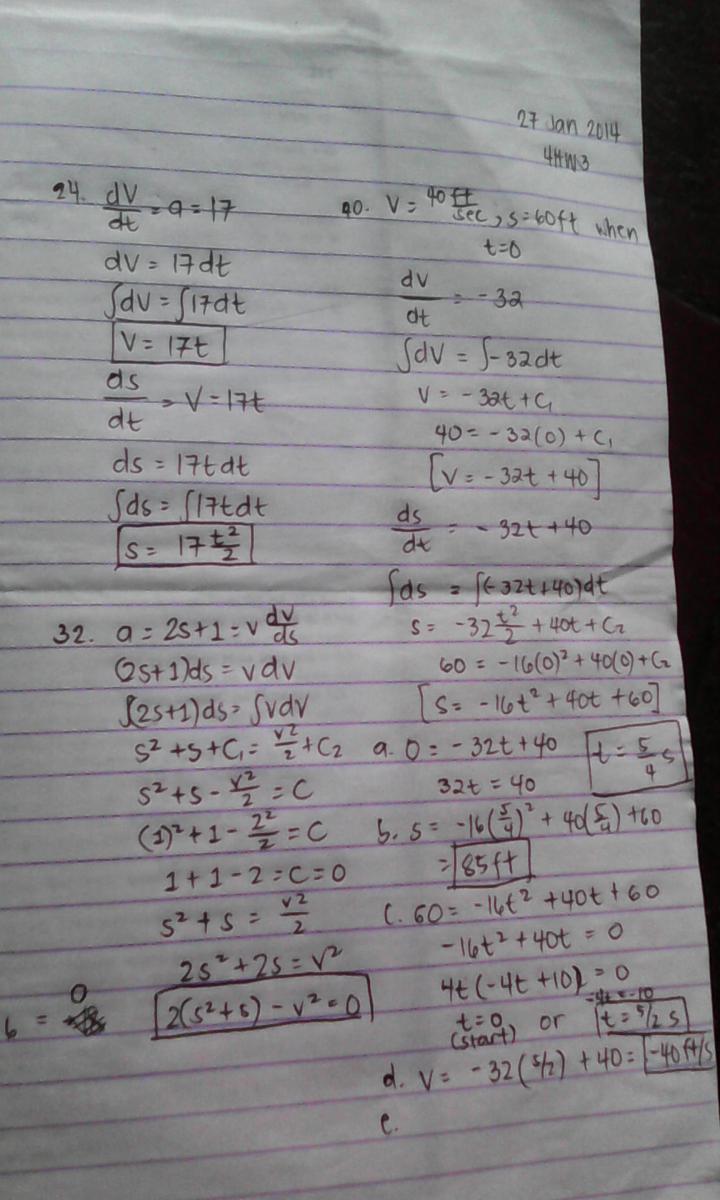 27 Jan 2014
4HW3
24. dV/dt = a = 17
dV = 17dt
∫dV = ∫17dt
V = 17t
ds/dt = V = 17t
ds = 17t dt
∫ds = ∫17tdt
s = 17 t²/2
32. a = 2s+1 = v dv/ds
(2s+1)ds = vdv
∫(2s+1)ds = ∫vdv
s² + s + C₁ = v²/2 + C₂
s² + s - v²/2 = C
(1)² + 1 - 2²/2 = C
1 + 1 - 2 = C = 0
s² + s = v²/2
2s² + 2s = v²
2(s²+s) - v² = 0
= 0
40. V = 40 ft/sec, s = 60ft when
t=0
dv/dt = -32
∫dV = ∫-32dt
V = -32t + C₁
40 = -32(0) + C₁
[V = -32t + 40]
ds/dt = -32t + 40
∫ds = ∫(-32t+40)dt
s = -32 t²/2 + 40t + C₂
60 = -16(0)² + 40(0) + C₂
[s = -16t² + 40t + 60]
a. 0 = -32t + 40
t = 5/4 s
32t = 40
b. s = -16(5/4)² + 40(5/4) + 60
= 85ft
c. 60 = -16t² + 40t + 60
-16t² + 40t = 0
4t(-4t + 10) = 0
-4t = -10
t=0 or t = 5/2 s
(start)
d. V = -32(5/2) + 40 = -40ft/s
e.